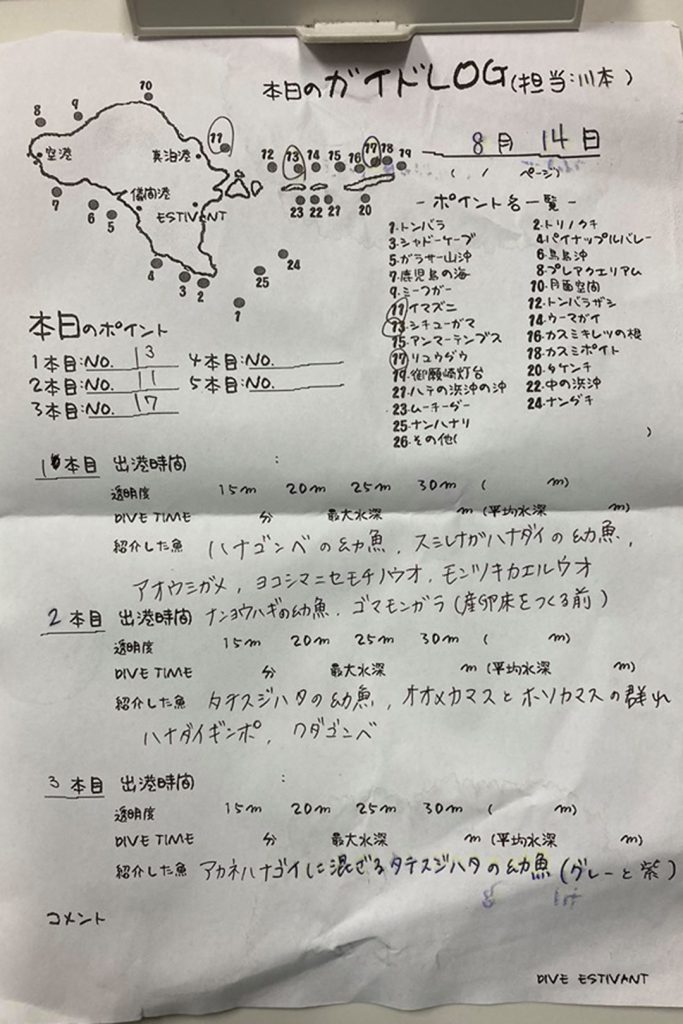 本日のガイドLOG(担当:川本)
8月 14日
( / ページ)
10
9
8
11
空港
真泊港
12 13 14 15 16 17 18 19
儀間港
7
6
5
ESTIVANT
23 22 21
20
24
25
4
3
2
1
- ポイント名一覧 -
1.トンバラ 2.トリノクチ
3.シャドーケーブ 4.パイナップルバレー
5.ガラサー山沖 6.鳥島沖
7.鹿児島の海 8.プレアクエリアム
9.ミーフガー 10.月面空間
11.イマズニ 12.トンバラザシ
13.シチューガマ 14.ウーマガイ
15.アンマーテンブス 16.カスミキレツの根
17.リュウグウ 18.カスミポイント
19.御願崎灯台 20.タケンチ
21.ハテの浜沖の沖 22.中の浜沖
23.ムーチーグー 24.ナングチ
25.ナンハナリ
26.その他( )
本日のポイント
1本目:NO. 13 4本目:NO.
2本目:NO. 11 5本目:NO.
3本目:NO. 17
1本目 出港時間 :
透明度 15m 20m 25m 30m ( m)
DIVE TIME 分 最大水深 m (平均水深 m)
紹介した魚 ハナゴンベの幼魚、スミレナガハナダイの幼魚、
アオウミガメ、ヨコシマニセモチノウオ、モンツキカエルウオ
2本目 出港時間 ナンヨウハギの幼魚、ゴマモンガラ(産卵床をつくる前)
透明度 15m 20m 25m 30m ( m)
DIVE TIME 分 最大水深 m (平均水深 m)
紹介した魚 タテスジハタの幼魚、オオメカマスとホソカマスの群れ
ハナダイギンポ、ワダゴンベ
3本目 出港時間 :
透明度 15m 20m 25m 30m ( m)
DIVE TIME 分 最大水深 m (平均水深 m)
紹介した魚 アカネハナゴイに混ざるタテスジハタの幼魚(グレーと紫)
コメント
DIVE ESTIVANT